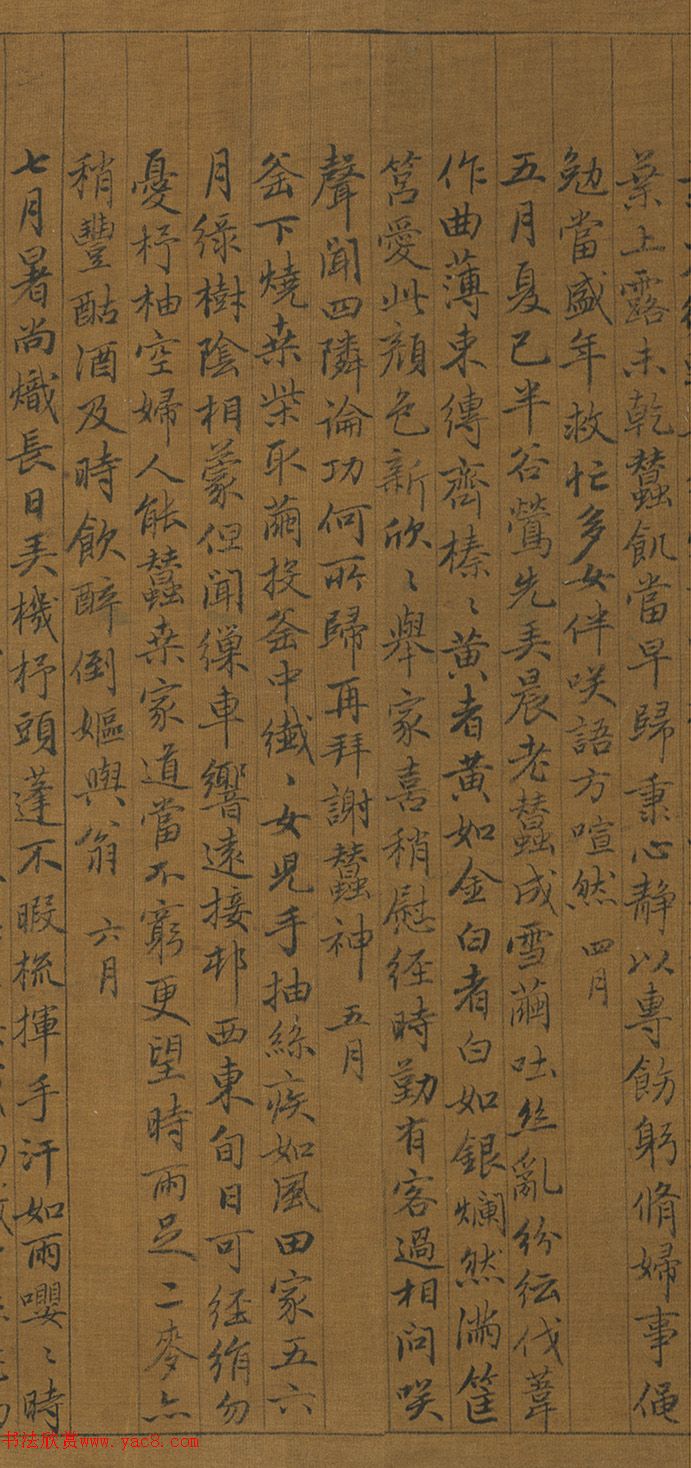 葉上露未乾蠶飢當早歸秉心静以專飭躬脩婦事僶
勉當盛年救忙多女伴咲語方喧然 四月
五月夏已半谷鶯先弄晨老蠶成雪繭吐丝亂紛紜伐葦
作曲薄束縳齊榛〻黄者黄如金白者白如銀爛然满筐
筥愛此顔色新欣〻舉家喜稍慰経時勤有客過相问咲
聲闻四隣論功何所歸再拜謝蠶神 五月
釜下燒桒柴取繭投釜中纎〻女兒手抽絲疾如風田家五六
月緑樹陰相蒙但闻繅車響遠接邨西東旬日可経絹勿
憂杼柚空婦人能蠶桒家道當不窮更望時雨足二麥亦
稍豐酤酒及時飲醉倒嫗與翁 六月
七月暑尚熾長日弄機杼頭蓬不暇梳揮手汗如雨嚶〻時
书法欣赏www.yac8.com